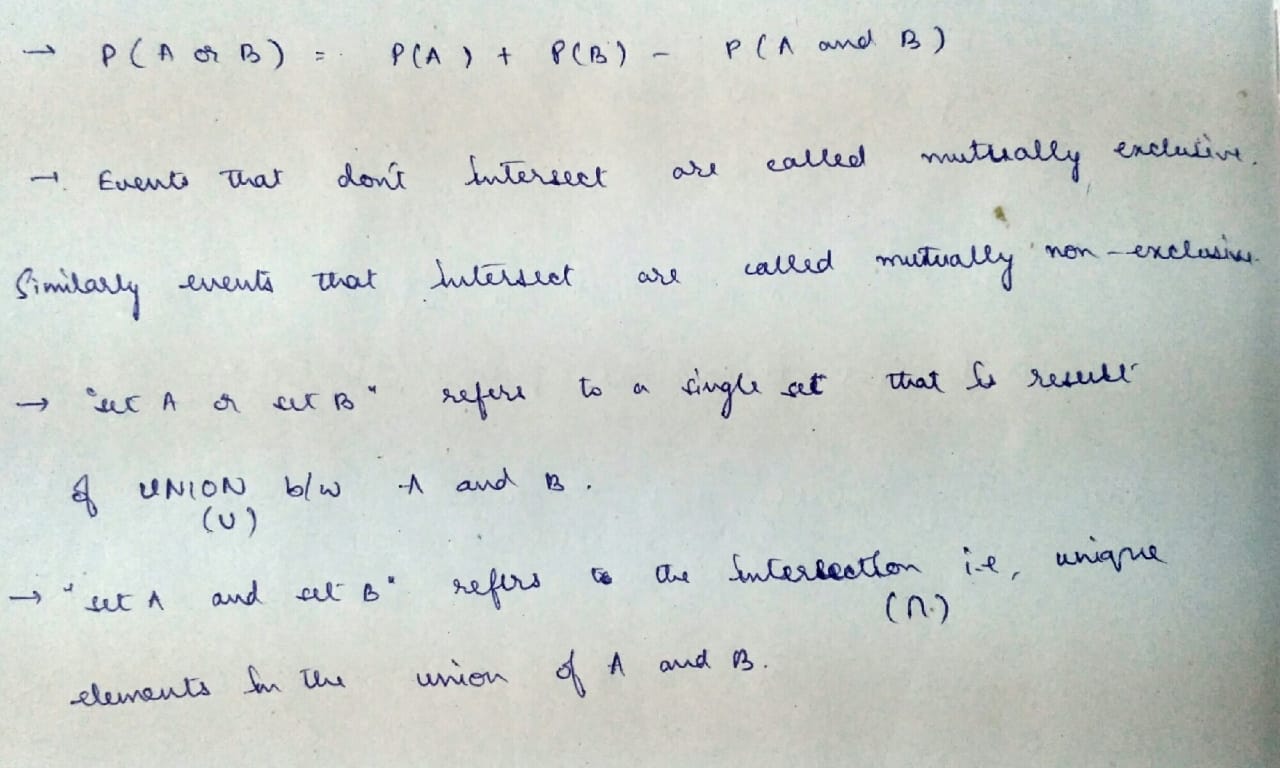 → P(A or B) = P(A) + P(B) - P(A and B)
→ Events that don't intersect are called mutually exclusive.
Similarly events that intersect are called mutually non-exclusive.
→ "set A or set B" refers to a single set that is result
of UNION b/w A and B.
(U)
→ "set A and set B" refers to the intersection i.e, unique
(∩)
elements in the union of A and B.